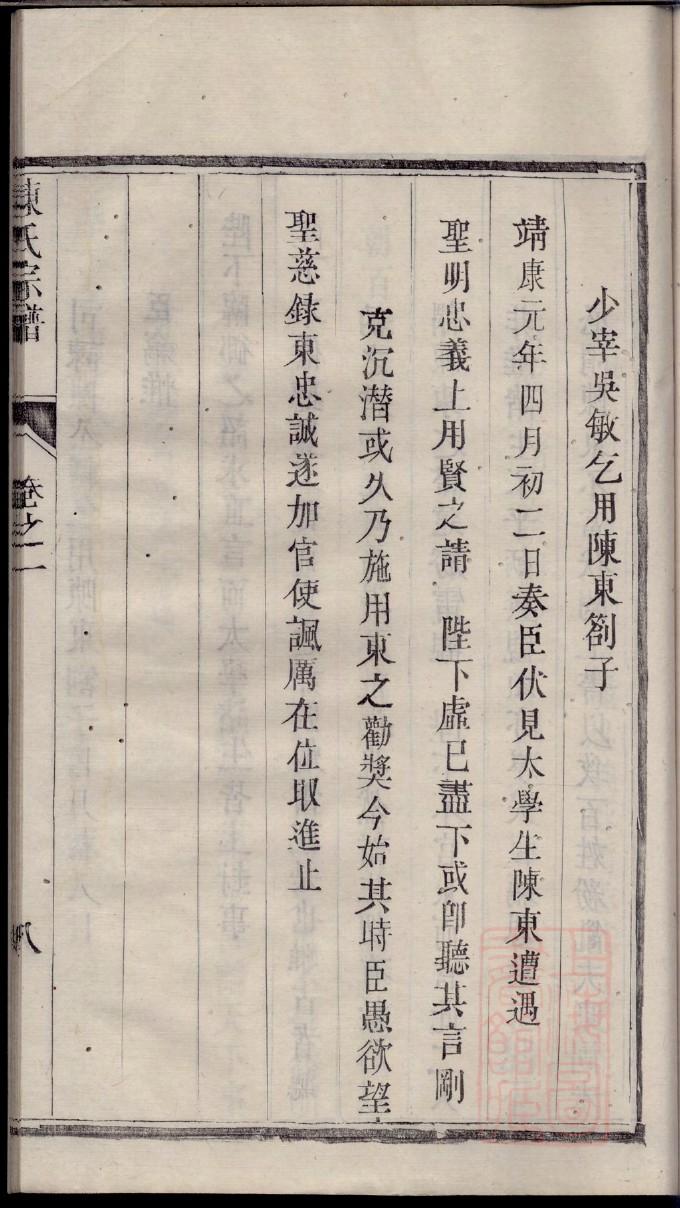 少宰吳敏乞用陳東劄子
靖康元年四月初二日奏臣伏見太學生陳東遭遇
聖明忠義上用賢之請 陛下虛已盡下或卽聽其言剛
克沉潛或久乃施用東之勸獎今始其時臣愚欲望
聖慈録東忠誠遂加官使諷厲在位取進止
陳氏宗譜 卷之二 八